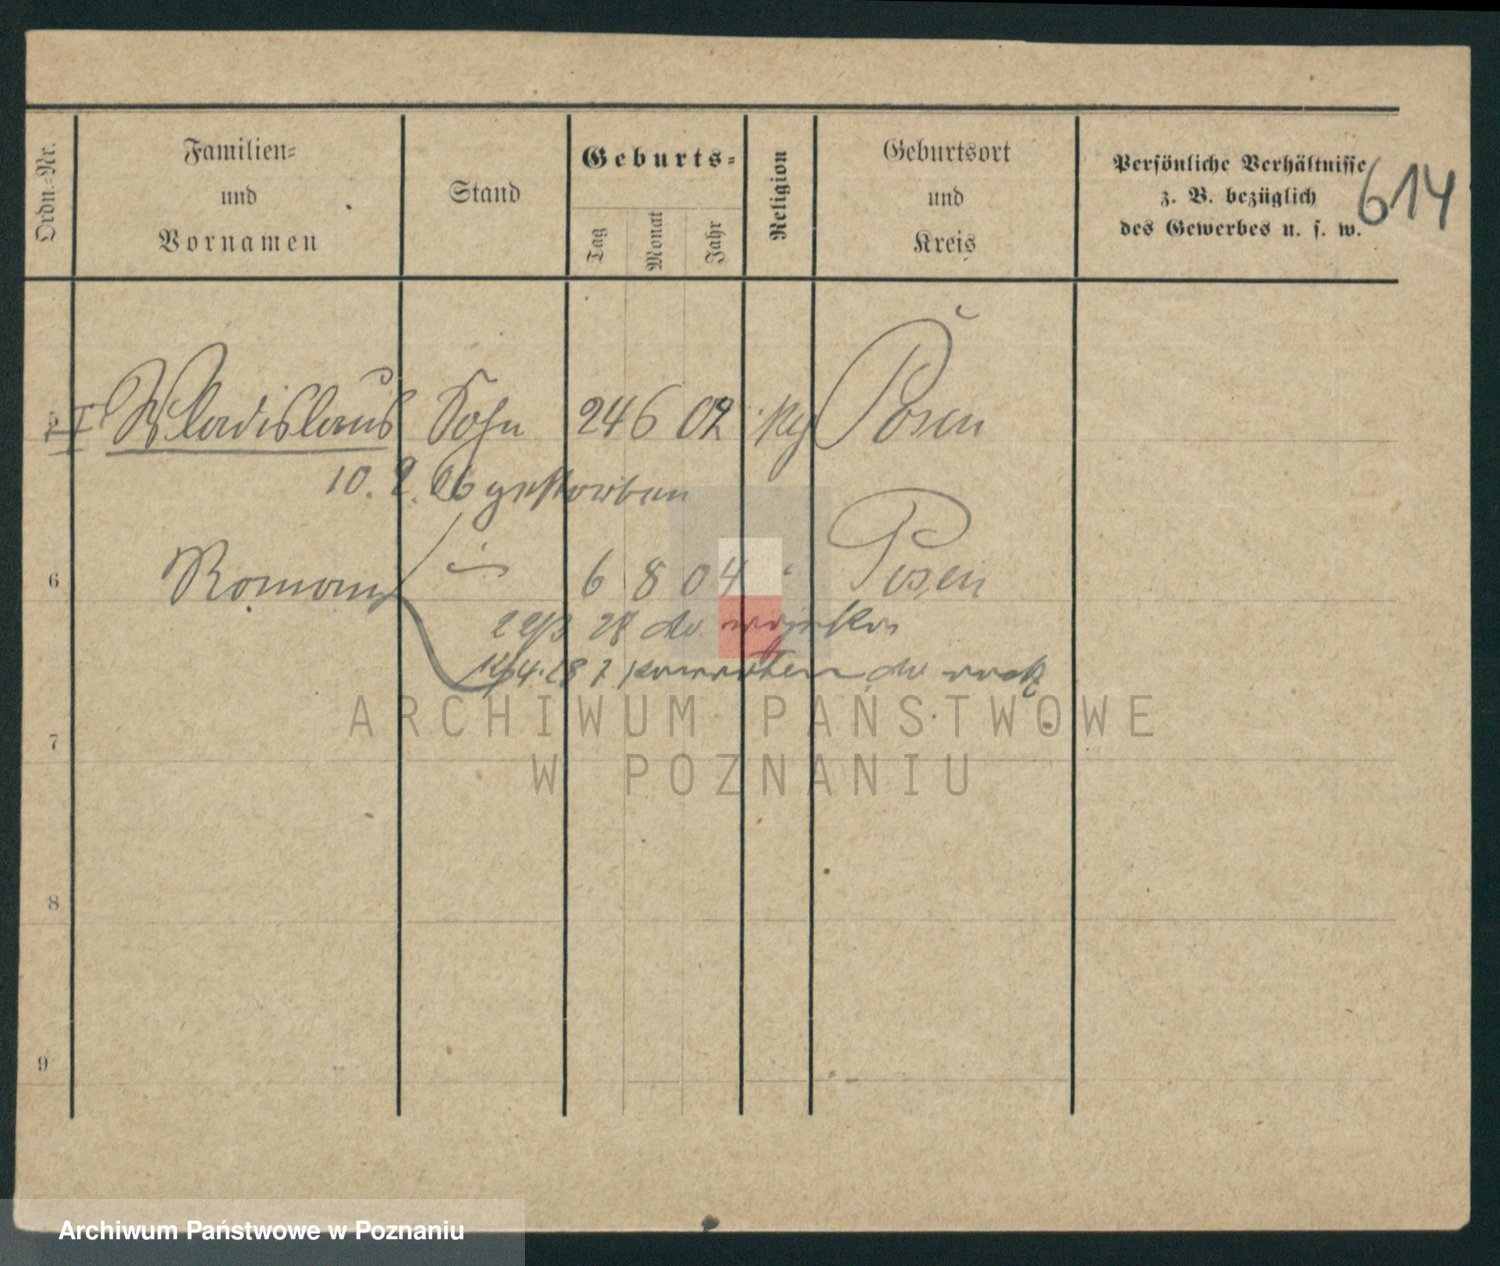 614
Ordn.=Nr.
Familien=
und
Vornamen
Stand
Geburts=
Tag
Monat
Jahr
Religion
Geburtsort
und
Kreis
Persönliche Verhältnisse
z. B. bezüglich
des Gewerbes u. s. w.
5 I Wladislaus Sohn 24 6 02 Posen
10. 2. 06 gestorben
6 Roman 6 8 04 Posen
28 do wojska
7
8
9
ARCHIWUM PAŃSTWOWE
W POZNANIU
Archiwum Państwowe w Poznaniu